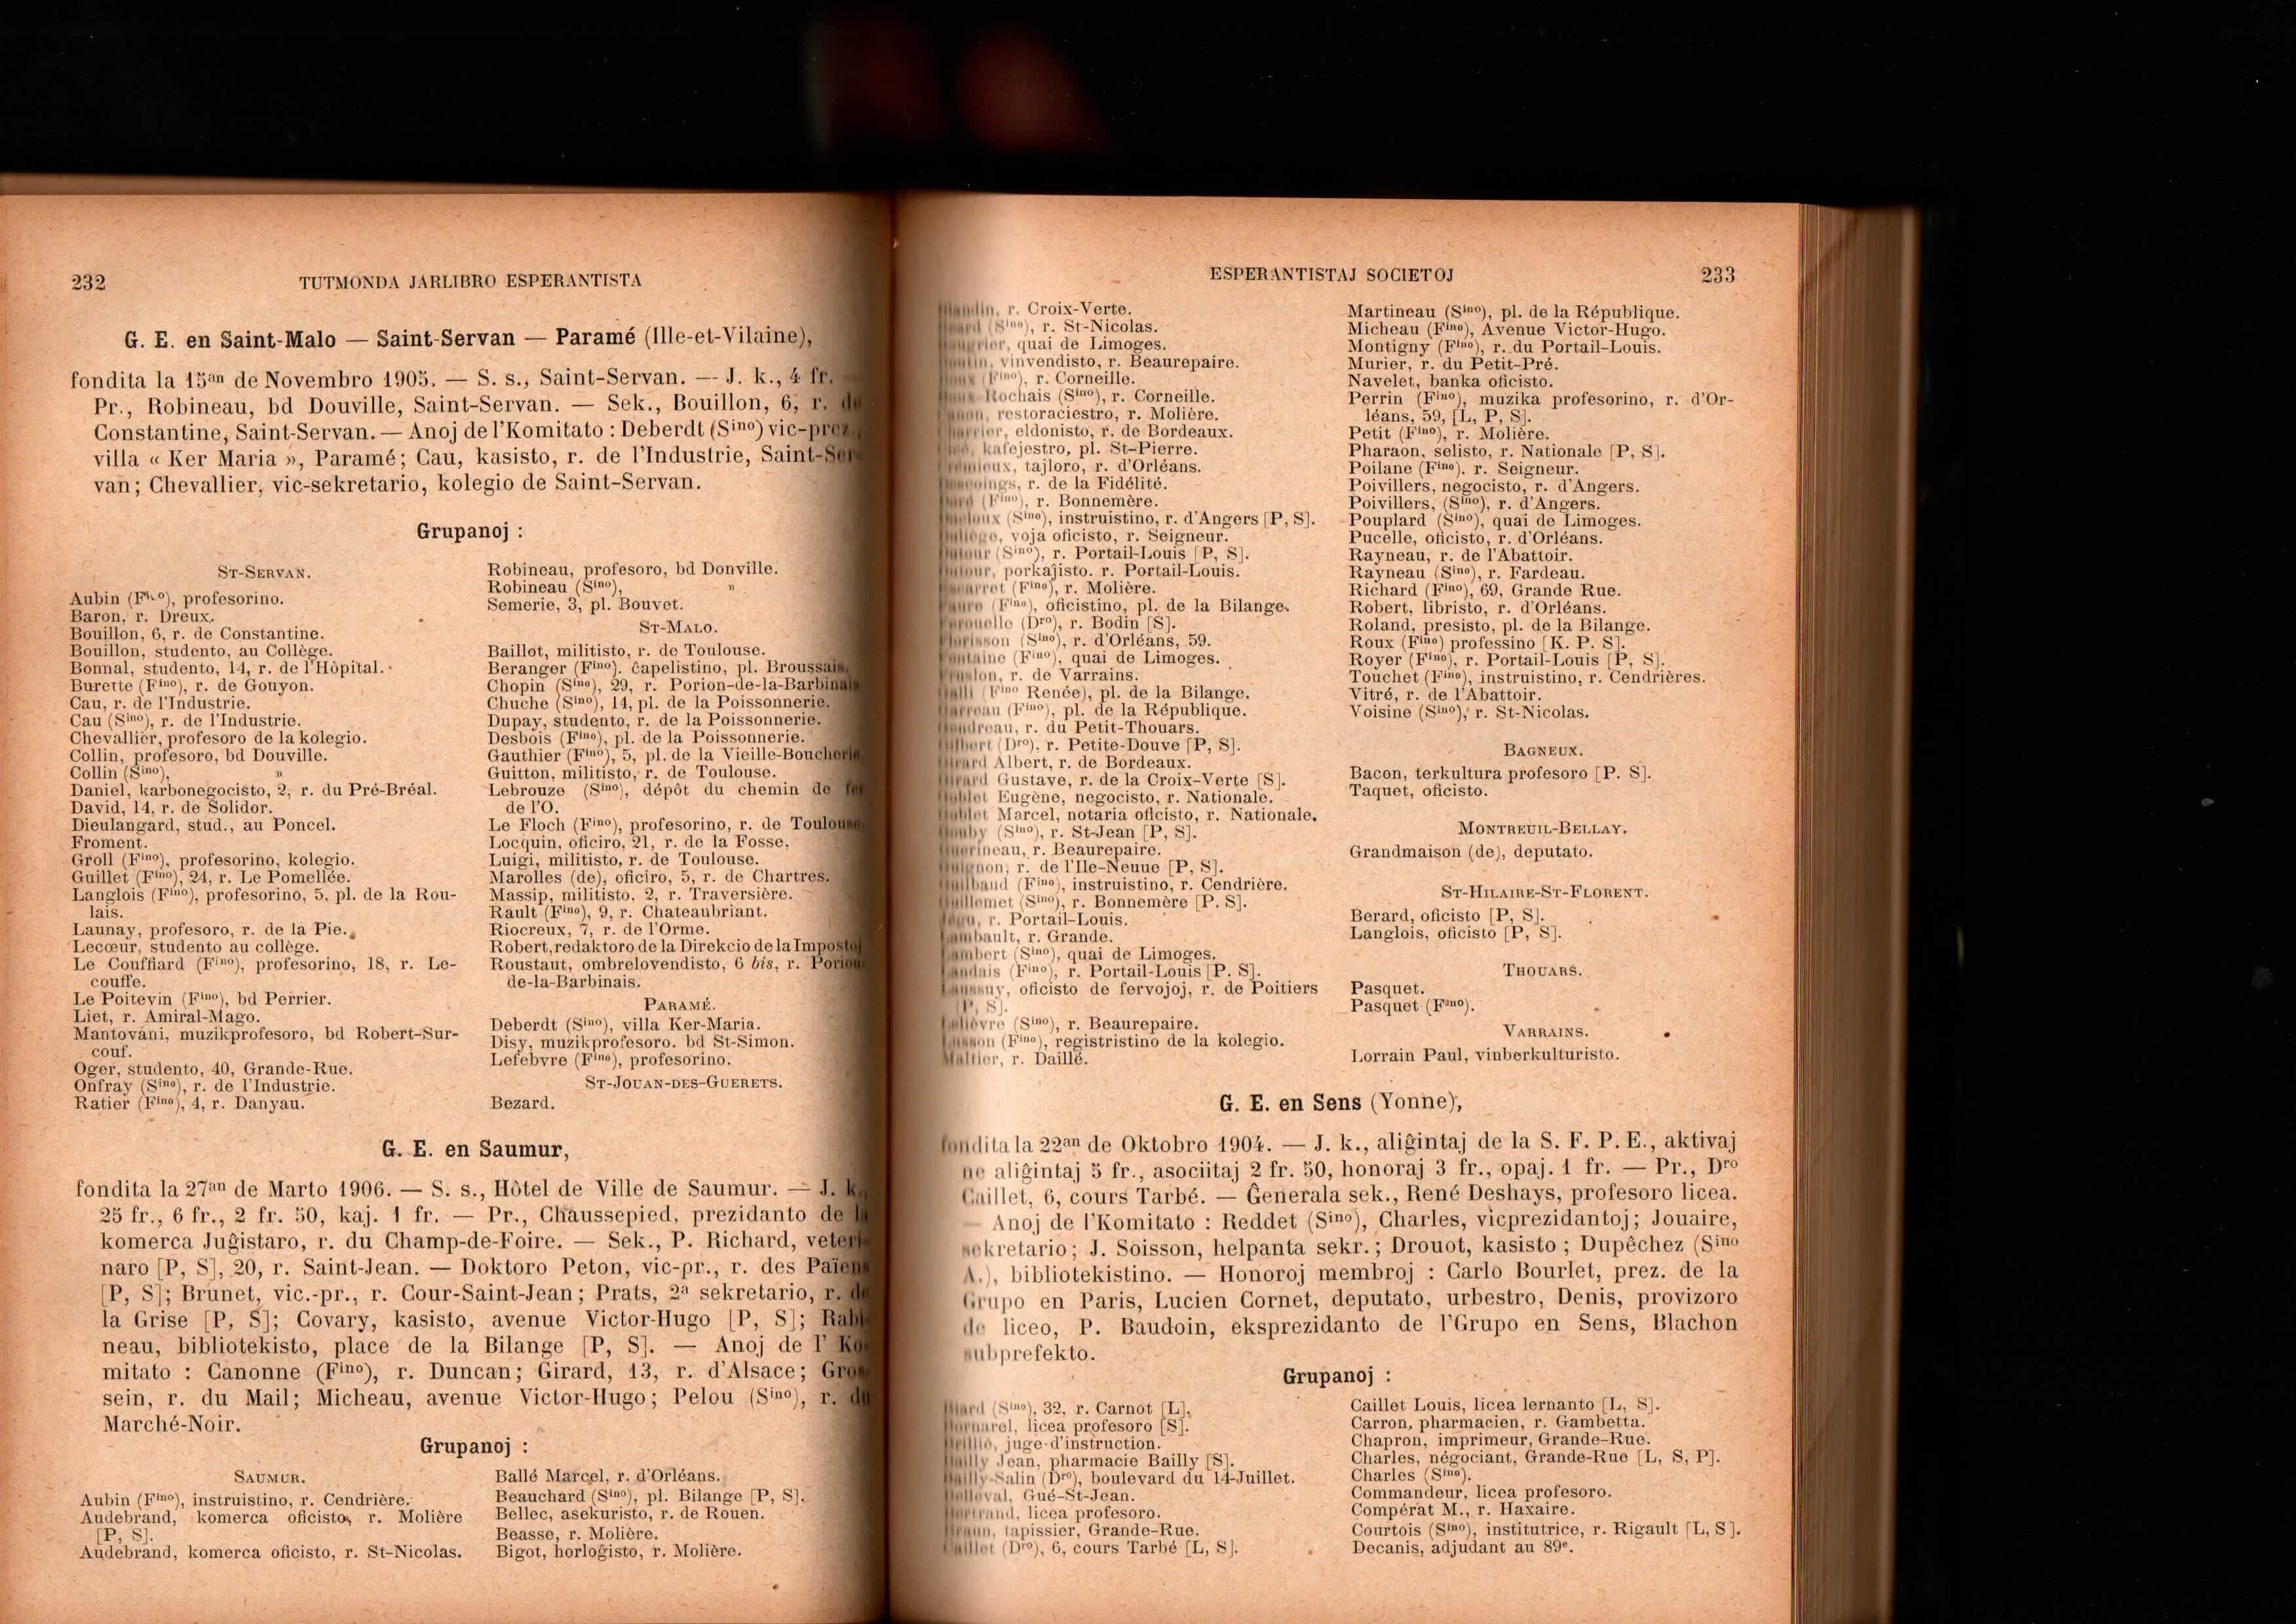 232
TUTMONDA JARLIBRO ESPERANTISTA
G. E. en Saint-Malo — Saint-Servan — Paramé (Ille-et-Vilaine),
fondita la 15an de Novembro 1905. — S. s., Saint-Servan. — J. k., 4 fr.
Pr., Robineau, bd Douville, Saint-Servan. — Sek., Bouillon, 6, r. de
Constantine, Saint-Servan. — Anoj de l'Komitato : Deberdt (Sino) vic-prez.,
villa « Ker Maria », Paramé; Cau, kasisto, r. de l'Industrie, Saint-Ser-
van; Chevallier, vic-sekretario, kolegio de Saint-Servan.
Grupanoj :
St-Servan.
Aubin (Fino), profesorino.
Baron, r. Dreux.
Bouillon, 6, r. de Constantine.
Bouillon, studento, au Collège.
Bonnal, studento, 14, r. de l'Hôpital.
Burette (Fino), r. de Gouyon.
Cau, r. de l'Industrie.
Cau (Sino), r. de l'Industrie.
Chevallier, profesoro de la kolegio.
Collin, profesoro, bd Douville.
Collin (Sino), »
Daniel, karbonegocisto, 2, r. du Pré-Bréal.
David, 14, r. de Solidor.
Dieulangard, stud., au Poncel.
Froment.
Groll (Fino), profesorino, kolegio.
Guillet (Fino), 24, r. Le Pomellée.
Langlois (Fino), profesorino, 5, pl. de la Rou-
lais.
Launay, profesoro, r. de la Pie.
Lecœur, studento au collège.
Le Couffiard (Fino), profesorino, 18, r. Le-
couffe.
Le Poitevin (Fino), bd Perrier.
Liet, r. Amiral-Mago.
Mantovani, muzikprofesoro, bd Robert-Sur-
couf.
Oger, studento, 40, Grande-Rue.
Onfray (Sino), r. de l'Industrie.
Ratier (Fino), 4, r. Danyau.
Robineau, profesoro, bd Donville.
Robineau (Sino), »
Semerie, 3, pl. Bouvet.
St-Malo.
Baillot, militisto, r. de Toulouse.
Beranger (Fino). ĉapelistino, pl. Broussais.
Chopin (Sino), 29, r. Porion-de-la-Barbinais
Chuche (Sino), 14, pl. de la Poissonnerie.
Dupay, studento, r. de la Poissonnerie.
Desbois (Fino), pl. de la Poissonnerie.
Gauthier (Fino), 5, pl. de la Vieille-Boucherie
Guitton, militisto, r. de Toulouse.
Lebrouze (Sino), dépôt du chemin de fer
de l'O.
Le Floch (Fino), profesorino, r. de Toulouse.
Locquin, oficiro, 21, r. de la Fosse.
Luigi, militisto, r. de Toulouse.
Marolles (de), oficiro, 5, r. de Chartres.
Massip, militisto, 2, r. Traversière.
Rault (Fino), 9, r. Chateaubriant.
Riocreux, 7, r. de l'Orme.
Robert, redaktoro de la Direkcio de la Impostoj
Roustaut, ombrelovendisto, 6 bis, r. Porion-
de-la-Barbinais.
Paramé.
Deberdt (Sino), villa Ker-Maria.
Disy, muzikprofesoro. bd St-Simon.
Lefebvre (Fino), profesorino.
St-Jouan-des-Guerets.
Bezard.
G. E. en Saumur,
fondita la 27an de Marto 1906. — S. s., Hôtel de Ville de Saumur. — J. k.,
25 fr., 6 fr., 2 fr. 50, kaj. 1 fr. — Pr., Chaussepied, prezidanto de la
komerca Juĝistaro, r. du Champ-de-Foire. — Sek., P. Richard, veteri-
naro [P, S], 20, r. Saint-Jean. — Doktoro Peton, vic-pr., r. des Païens
[P, S]; Brunet, vic.-pr., r. Cour-Saint-Jean; Prats, 2a sekretario, r. de
la Grise [P, S]; Covary, kasisto, avenue Victor-Hugo [P, S]; Rabi-
neau, bibliotekisto, place de la Bilange [P, S]. — Anoj de l' Ko-
mitato : Canonne (Fino), r. Duncan; Girard, 13, r. d'Alsace; Gros-
sein, r. du Mail; Micheau, avenue Victor-Hugo; Pelou (Sino), r. du
Marché-Noir.
Grupanoj :
Saumur.
Aubin (Fino), instruistino, r. Cendrière.
Audebrand, komerca oficisto, r. Molière
[P, S].
Audebrand, komerca oficisto, r. St-Nicolas.
Ballé Marcel, r. d'Orléans.
Beauchard (Sino), pl. Bilange [P, S].
Bellec, asekuristo, r. de Rouen.
Beasse, r. Molière.
Bigot, horloĝisto, r. Molière.
ESPERANTISTAJ SOCIETOJ
233
r. Croix-Verte.
(Sino), r. St-Nicolas.
quai de Limoges.
vinvendisto, r. Beaurepaire.
(Fino), r. Corneille.
Rochais (Sino), r. Corneille.
restoraciestro, r. Molière.
eldonisto, r. de Bordeaux.
kafejestro, pl. St-Pierre.
tajloro, r. d'Orléans.
r. de la Fidélité.
(Fino), r. Bonnemère.
(Sino), instruistino, r. d'Angers [P, S].
voja oficisto, r. Seigneur.
(Sino), r. Portail-Louis [P, S].
porkajisto. r. Portail-Louis.
(Fino), r. Molière.
(Fino), oficistino, pl. de la Bilange.
(Dro), r. Bodin [S].
(Sino), r. d'Orléans, 59.
Fontaine (Fino), quai de Limoges.
r. de Varrains.
(Fino Renée), pl. de la Bilange.
(Fino), pl. de la République.
r. du Petit-Thouars.
(Dro), r. Petite-Douve [P, S].
Girard Albert, r. de Bordeaux.
Girard Gustave, r. de la Croix-Verte [S].
Eugène, negocisto, r. Nationale.
Marcel, notaria oficisto, r. Nationale.
(Sino), r. St-Jean [P, S].
r. Beaurepaire.
r. de l'Ile-Neuue [P, S].
(Fino), instruistino, r. Cendrière.
Guillemet (Sino), r. Bonnemère [P. S].
r. Portail-Louis.
Lambault, r. Grande.
Lambert (Sino), quai de Limoges.
Landais (Fino), r. Portail-Louis [P. S].
oficisto de fervojoj, r. de Poitiers
[P, S].
Lelièvre (Sino), r. Beaurepaire.
(Fino), registristino de la kolegio.
Maltier, r. Daillé.
Martineau (Sino), pl. de la République.
Micheau (Fino), Avenue Victor-Hugo.
Montigny (Fino), r. du Portail-Louis.
Murier, r. du Petit-Pré.
Navelet, banka oficisto.
Perrin (Fino), muzika profesorino, r. d'Or-
léans, 59, [L, P, S].
Petit (Fino), r. Molière.
Pharaon, selisto, r. Nationale [P, S].
Poilane (Fino). r. Seigneur.
Poivillers, negocisto, r. d'Angers.
Poivillers, (Sino), r. d'Angers.
Pouplard (Sino), quai de Limoges.
Pucelle, oficisto, r. d'Orléans.
Rayneau, r. de l'Abattoir.
Rayneau (Sino), r. Fardeau.
Richard (Fino), 69, Grande Rue.
Robert, libristo, r. d'Orléans.
Roland, presisto, pl. de la Bilange.
Roux (Fino) professino [K. P. S].
Royer (Fino), r. Portail-Louis [P, S].
Touchet (Fino), instruistino, r. Cendrières.
Vitré, r. de l'Abattoir.
Voisine (Sino), r. St-Nicolas.
Bagneux.
Bacon, terkultura profesoro [P. S].
Taquet, oficisto.
Montreuil-Bellay.
Grandmaison (de), deputato.
St-Hilaire-St-Florent.
Berard, oficisto [P, S].
Langlois, oficisto [P, S].
Thouars.
Pasquet.
Pasquet (Fino).
Varrains.
Lorrain Paul, vinberkulturisto.
G. E. en Sens (Yonne),
fondita la 22an de Oktobro 1904. — J. k., aliĝintaj de la S. F. P. E., aktivaj
ne aliĝintaj 5 fr., asociitaj 2 fr. 50, honoraj 3 fr., opaj. 1 fr. — Pr., Dro
Caillet, 6, cours Tarbé. — Ĝenerala sek., René Deshays, profesoro licea.
— Anoj de l'Komitato : Reddet (Sino), Charles, vicprezidantoj; Jouaire,
sekretario; J. Soisson, helpanta sekr.; Drouot, kasisto; Dupêchez (Sino
A.), bibliotekistino. — Honoroj membroj : Carlo Bourlet, prez. de la
Grupo en Paris, Lucien Cornet, deputato, urbestro, Denis, provizoro
de liceo, P. Baudoin, eksprezidanto de l'Grupo en Sens, Blachon
subprefekto.
Grupanoj :
(Sino), 32, r. Carnot [L].
licea profesoro [S].
juge-d'instruction.
Bailly Jean, pharmacie Bailly [S].
Bailly-Salin (Dro), boulevard du 14-Juillet.
Gué-St-Jean.
Bertrand, licea profesoro.
tapissier, Grande-Rue.
Caillet (Dro), 6, cours Tarbé [L, S].
Caillet Louis, licea lernanto [L, S].
Carron, pharmacien, r. Gambetta.
Chapron, imprimeur, Grande-Rue.
Charles, négociant, Grande-Rue [L, S, P].
Charles (Sino).
Commandeur, licea profesoro.
Compérat M., r. Haxaire.
Courtois (Sino), institutrice, r. Rigault [L, S].
Decanis, adjudant au 89e.